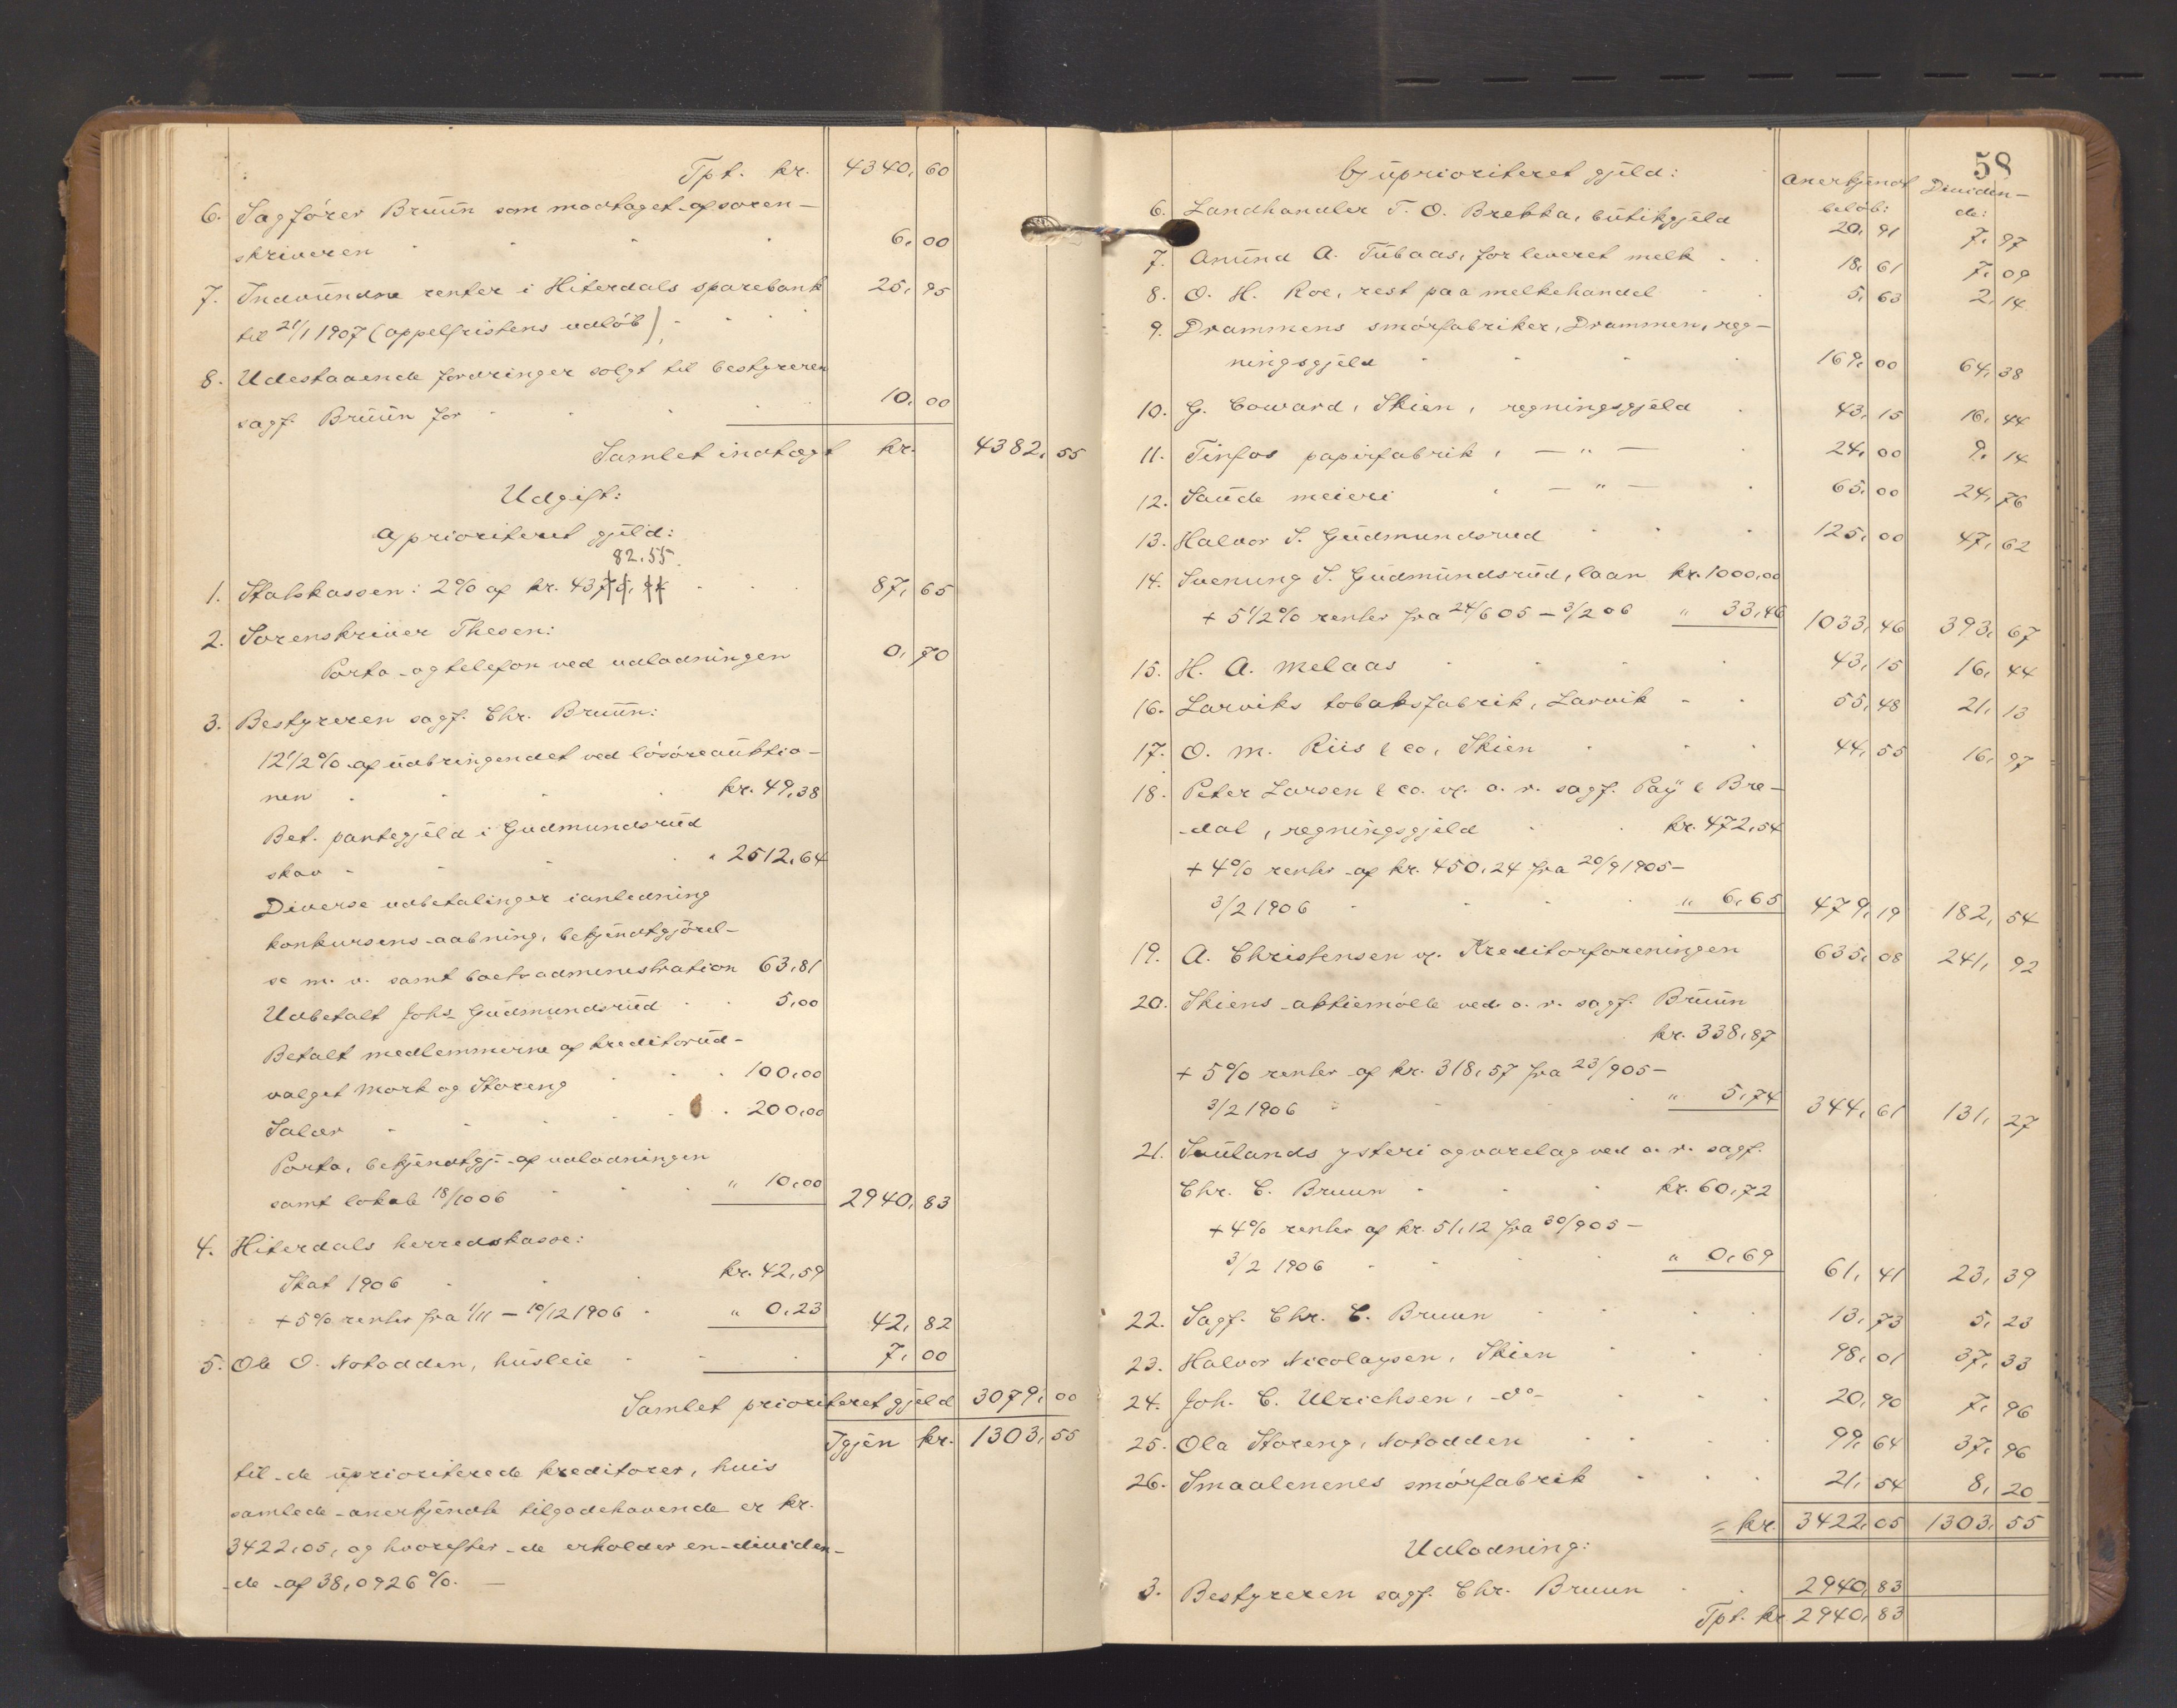 Tpt. kr. 4340,60
6. Sagfører Bruun som modtaget af soren-
skriveren 6,00
7. Indvundne renter i Hiterdals sparebank 25,95
til 21/1 1907 (appelfristens udløb),
8. Udestaaende fordringer solgt til bestyreren
sagf. Bruun for 10,00
Samlet indtægt kr. 4382,55
Udgift:
a) prioritert gjeld:
82.55.
1. Statskassen: 2% af kr. 43 87,65
2. Sorenskriver Thesen:
Porto og telefon ved udlodningen 0,70
3. Bestyreren sagf. Chr. Bruun:
12 1/2% af udbringendet ved løsøreauktio-
nen kr. 49,38
Bet. pantegjeld i Gudmundsrud
skov " 2512,64
Diverse udbetalinger i anledning
konkursens aabning, bekjendtgjørel-
se m. v. samt boets administration 63,81
Udbetalt Johs. Gudmundsrud 5,00
Betalt medlemmerne af kreditorud-
valget Mork og Storeng 100,00
Salær 200,00
Porto, bekjendtgj. af udlodningen
samt lokale 18/10 06 " 10,00 2940,83
4. Hiterdals herredskasse:
Skat 1906 kr. 42,59
+ 5% renter fra 1/11 – 10/12 1906 " 0,23 42,82
5. Ole O. Notodden, husleie 7,00
Samlet prioriteret gjeld 3079,00
Igjen kr. 1303,55
til de uprioriterede kreditorer, hvis
samlede anerkjendte tilgodehavende er kr.
3422,05, og hvorefter de erholder en dividen-
de af 38,0926%. —
58
b) uprioriteret gjeld: Anerkjendt Dividen-
beløb: de:
6. Landhandler T. O. Brekka, butikgjeld 20,91 7,97
7. Anund A. Tubaas, for leveret melk 18,61 7,09
8. O. H. Roe, rest paa melkehandel 5,63 2,14
9. Drammens smørfabriker, Drammen, reg-
ningsgjeld 169,00 64,38
10. G. Coward, Skien, regningsgjeld 43,15 16,44
11. Tinfos papirfabrik, — " — 24,00 9,14
12. Saude meieri, — " — 65,00 24,76
13. Halvor S. Gudmundsrud 125,00 47,62
14. Svenung S. Gudmundsrud, laan kr. 1000,00
+ 5 1/2% renter fra 24/6 05 – 3/2 06 " 33,46 1033,46 393,67
15. H. A. Melaas 43,15 16,44
16. Larviks tobaksfabrik, Larvik 55,48 21,13
17. O. M. Riis & co, Skien 44,55 16,97
18. Peter Larsen & co. v. o. r. sagf. Pay & Bre-
dal, regningsgjeld kr. 472,54
+ 4% renter af kr. 450,24 fra 20/9 1905 –
3/2 1906 " 6,65 479,19 182,54
19. A. Christensen v. Kreditorforeningen 635,08 241,92
20. Skiens aktiemølle ved o. r. sagf. Bruun
kr. 338,87
+ 5% renter af kr. 318,57 fra 23/9 05 –
3/2 1906 " 5,74 344,61 131,27
21. Saulands ysteri og varelag ved o. r. sagf.
Chr. C. Bruun kr. 60,72
+ 4% renter af kr. 51,12 fra 30/9 05 –
3/2 1906 " 0,69 61,41 23,39
22. Sagf. Chr. C. Bruun 13,73 5,23
23. Halvor Nicolaysen, Skien 98,01 37,33
24. Joh. C. Ulrichsen, -do- 20,90 7,96
25. Ola Storeng, Notodden 99,64 37,96
26. Smaalenenes smørfabrik 21,54 8,20
= kr. 3422,05 1303,55
Udlodning:
3. Bestyreren sagf. Chr. Bruun 2940,83
Tpt. kr 2940,83